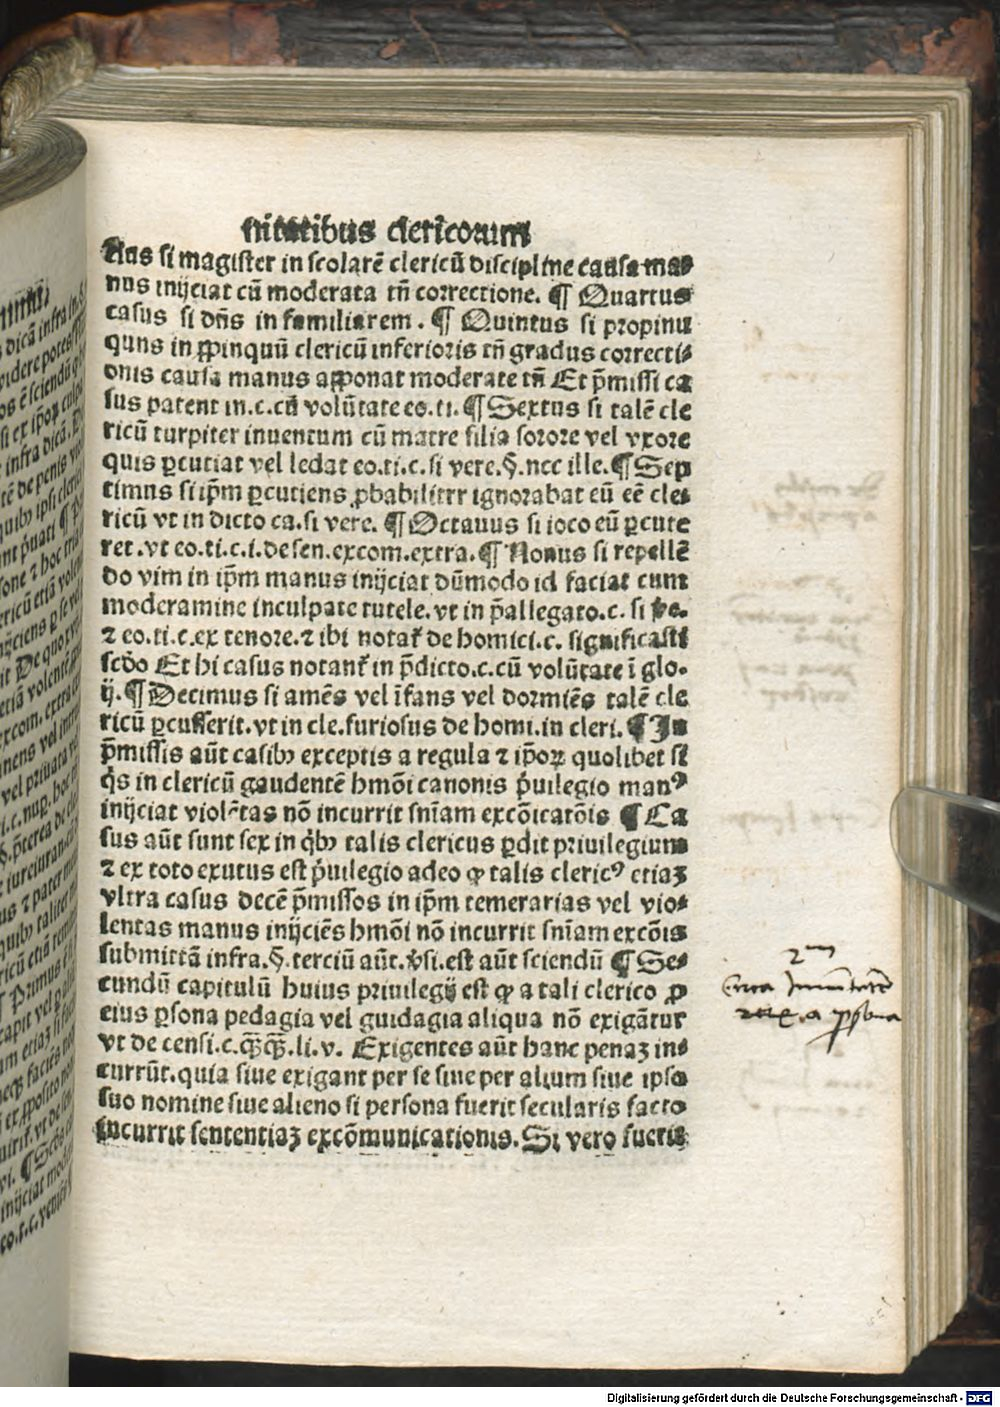 nitatibus clericorum
tius si magister in scolarē clericū discipline causa ma⸗
nus inijciat cū moderata tñ correctione. ¶ Quartus
casus si dñs in familiarem. ¶ Quintus si propinu
quns in ꝓpinquū clericū inferioris tñ gradus correcti⸗
onis causa manus apponat moderate tñ Et p̄missi ca
sus patent in.c.cū volūtate eo.ti. ¶ Sextus si talē cle
ricū turpiter inuentum cū matre filia sorore vel vxore
quis ꝑcutiat vel ledat eo.ti.c.si vere.§.nec ille. ¶ Sep
timus si ip̄m ꝑcutiens ꝓbabiliter ignorabat eū eē cle⸗
ricū vt in dicto ca.si vere. ¶ Octauus si ioco eū ꝑcute
ret.vt eo.ti.c.i.de sen.excom.extra. ¶ Nonus si repellē
do vim in ip̄m manus inijciat dūmodo id faciat cum
moderamine inculpate tutele.vt in p̄allegato.c. si ve.
⁊ eo.ti.c.ex tenore.⁊ ibi notat̄ de homici.c. significasti
scd̄o Et hi casus notant̄ in p̄dicto.c.cū volūtate ī glo.
ij. ¶ Decimus si amēs vel īfans vel dormiēs talē cle
ricū ꝑcusserit.vt in cle.furiosus de homi.in cleri. ¶ In
p̄missis aūt casibꝫ exceptis a regula ⁊ ip̄oꝝ quolibet si
q̇s in clericū gaudentē hmōi canonis p̄uilegio manꝰ
inijciat violētas nō incurrit sn̄iam excōicatōis ¶ Ca
sus aūt sunt sex in q̇bꝫ talis clericus ꝑdit priuilegium
⁊ ex toto exutus est p̄uilegio adeo ꝙ talis clericꝰ etiaꝫ
vltra casus decē p̄missos in ip̄m temerarias vel vio⸗
lentas manus inijciēs hmōi nō incurrit sn̄iam excōis
submittā infra.§.terciū aūt.v̄si.est aūt sciendū ¶ Se⸗
cundū capitulū huius priuilegij est ꝙ a tali clerico ꝓ
eius ꝑsona pedagia vel guidagia aliqua nō exigātur
vt de censi.c.qꝫqꝫ.li.v. Exigentes aūt hanc penaꝫ in⸗
currūt.quia siue exigant per se siue per alium siue ipso
suo nomine siue alieno si persona fuerit secularis facto
incurrit sententiaꝫ excōmunicationis. Si vero fuerit
2m
Circa
a ꝑsona
Digitalisierung gefördert durch die Deutsche Forschungsgemeinschaft - DFG